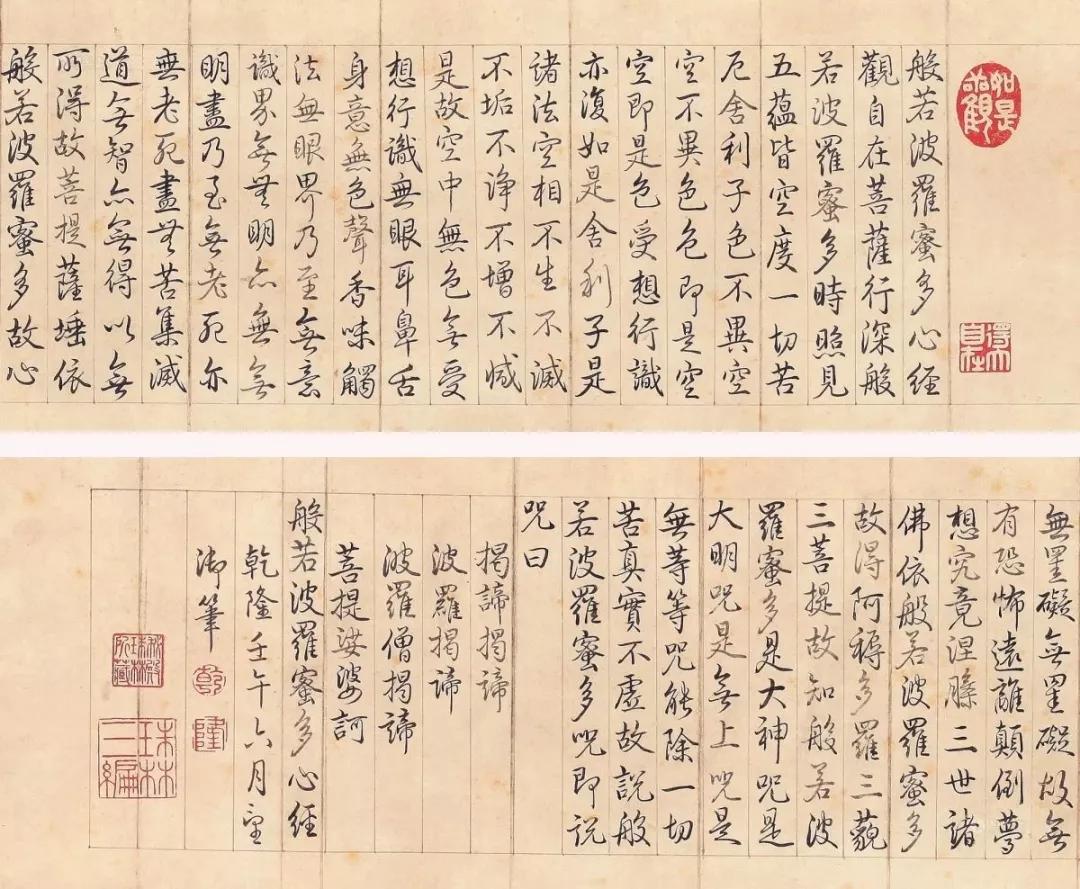 如是
觀
得大
自在
般若波羅蜜多心經
觀自在菩薩行深般
若波羅蜜多時照見
五蘊皆空度一切苦
厄舍利子色不異空
空不異色色即是空
空即是色受想行識
亦復如是舍利子是
諸法空相不生不滅
不垢不淨不增不減
是故空中無色無受
想行識無眼耳鼻舌
身意無色聲香味觸
法無眼界乃至無意
識界無無明亦無無
明盡乃至無老死亦
無老死盡無苦集滅
道無智亦無得以無
所得故菩提薩埵依
般若波羅蜜多故心
無罣礙無罣礙故無
有恐怖遠離顛倒夢
想究竟涅槃三世諸
佛依般若波羅蜜多
故得阿耨多羅三藐
三菩提故知般若波
羅蜜多是大神咒是
大明咒是無上咒是
無等等咒能除一切
苦真實不虛故說般
若波羅蜜多咒即說
咒曰
揭諦揭諦
波羅揭諦
波羅僧揭諦
菩提娑婆訶
般若波羅蜜多心經
乾隆壬午六月望
御筆
乾
隆
秘殿
珠林
所藏
珠林
三編